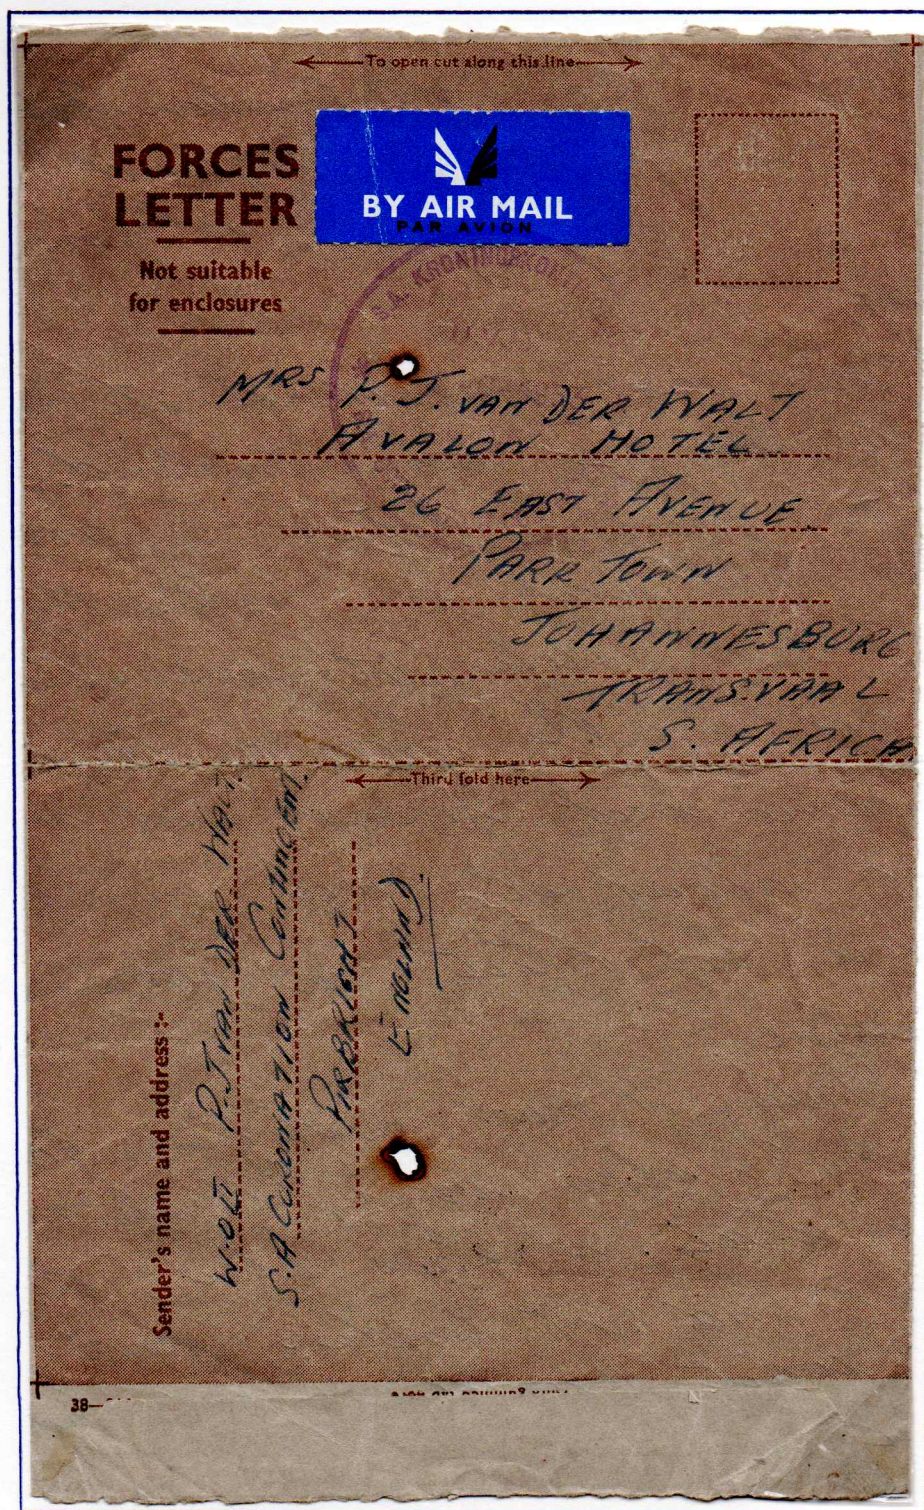 To open cut along this line
FORCES
LETTER
Not suitable
for enclosures
BY AIR MAIL
PAR AVION
S.A. KRONINGSKON
MRS P. J. VAN DER WALT
AVALON HOTEL
26 EAST AVENUE
PARK TOWN
JOHANNESBURG
TRANSVAAL
S. AFRICA
Third fold here
Sender's name and address :-
W.O II P.J VAN DER WALT.
S.A CORONATION CONTINGENT.
PIRBRIGHT
ENGLAND.
38—